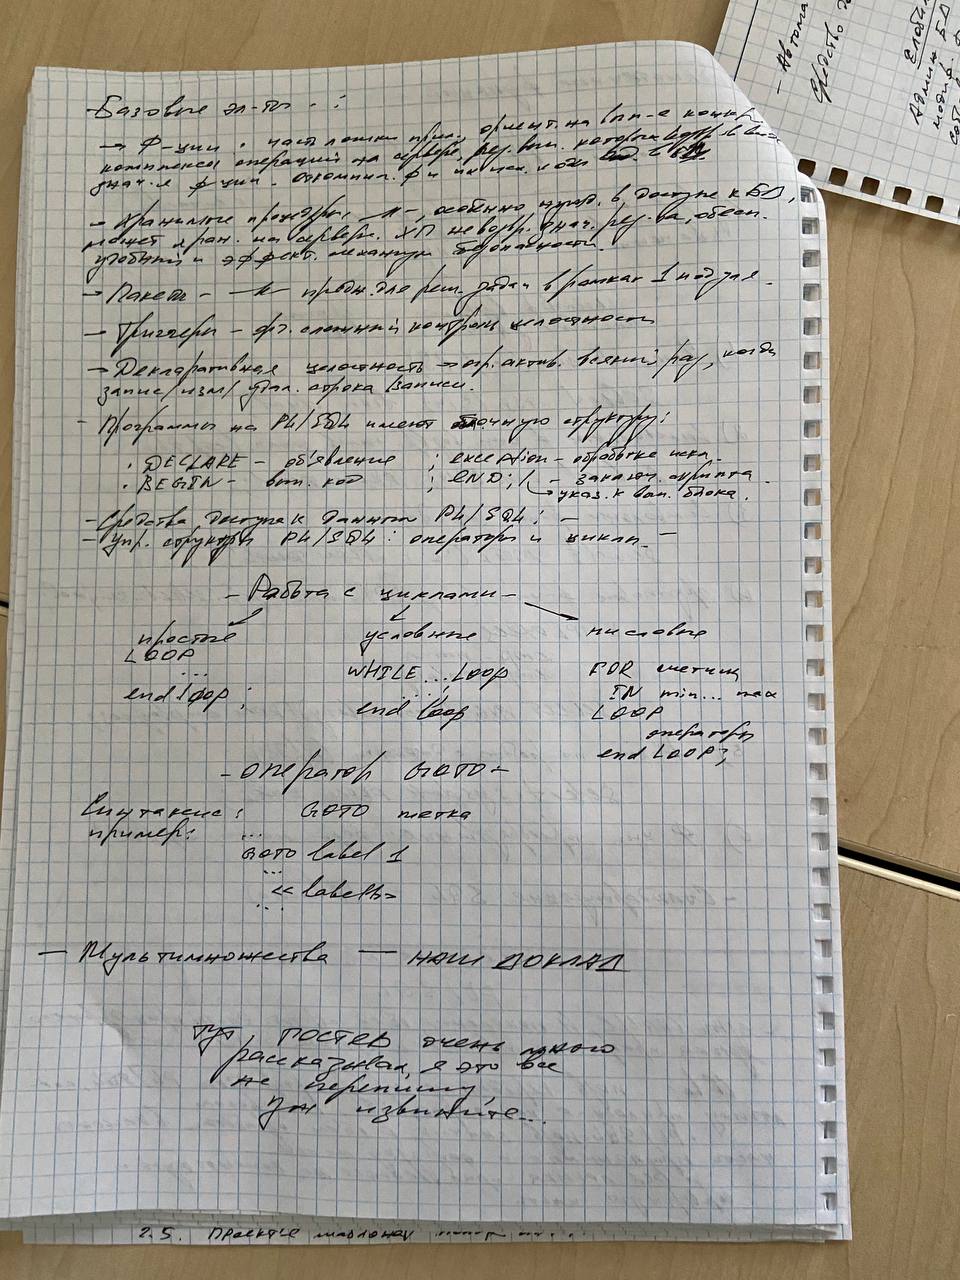 - Базовые эл-ты - :
→ Ф-ции : част. прим., ориент. на вып-е конкр.
комплекса операций на сервере, рез. вып. которых
знач-е ф-ции.
→ Хранимые процедуры -//-, особенно в доступе к БД,
может хран. на сервере. ХП не возвр. знач. рез-та, обесп.
удобный и эффект. механизм безопасности
→ Пакеты - -//- предн. для реш. задач в рамках 1 модуля.
→ Триггеры - сложный контроль целостности
→ Декларативная целостность → огр. актив. всякий раз, когда
запис/изм/удал. строка/записи.
- Программы на PL/SQL имеют блочную структуру:
. DECLARE - объявление ; exception - обработка искл.
. BEGIN - вып. код ; END; / - заключ. скрипта
указ. к вып. блока.
- Средства доступа к данным PL/SQL: -
- Упр. структуры PL/SQL: операторы и циклы -
- Работа с циклами -
простые условные числовые
LOOP
... WHILE ... LOOP FOR счетчик
end loop; .... IN min... max
end loop LOOP
операторы
end LOOP;
- оператор GOTO -
Синтаксис: GOTO метка
пример: ...
GOTO label 1
...
<<label1>>
...
— Мультимножества — НАШ ДОКЛАД
тут, постев очень много
рассказывал, я это все
не перепишу
уж извините...
2.5. Простые
- Автома
средство
Админ БД